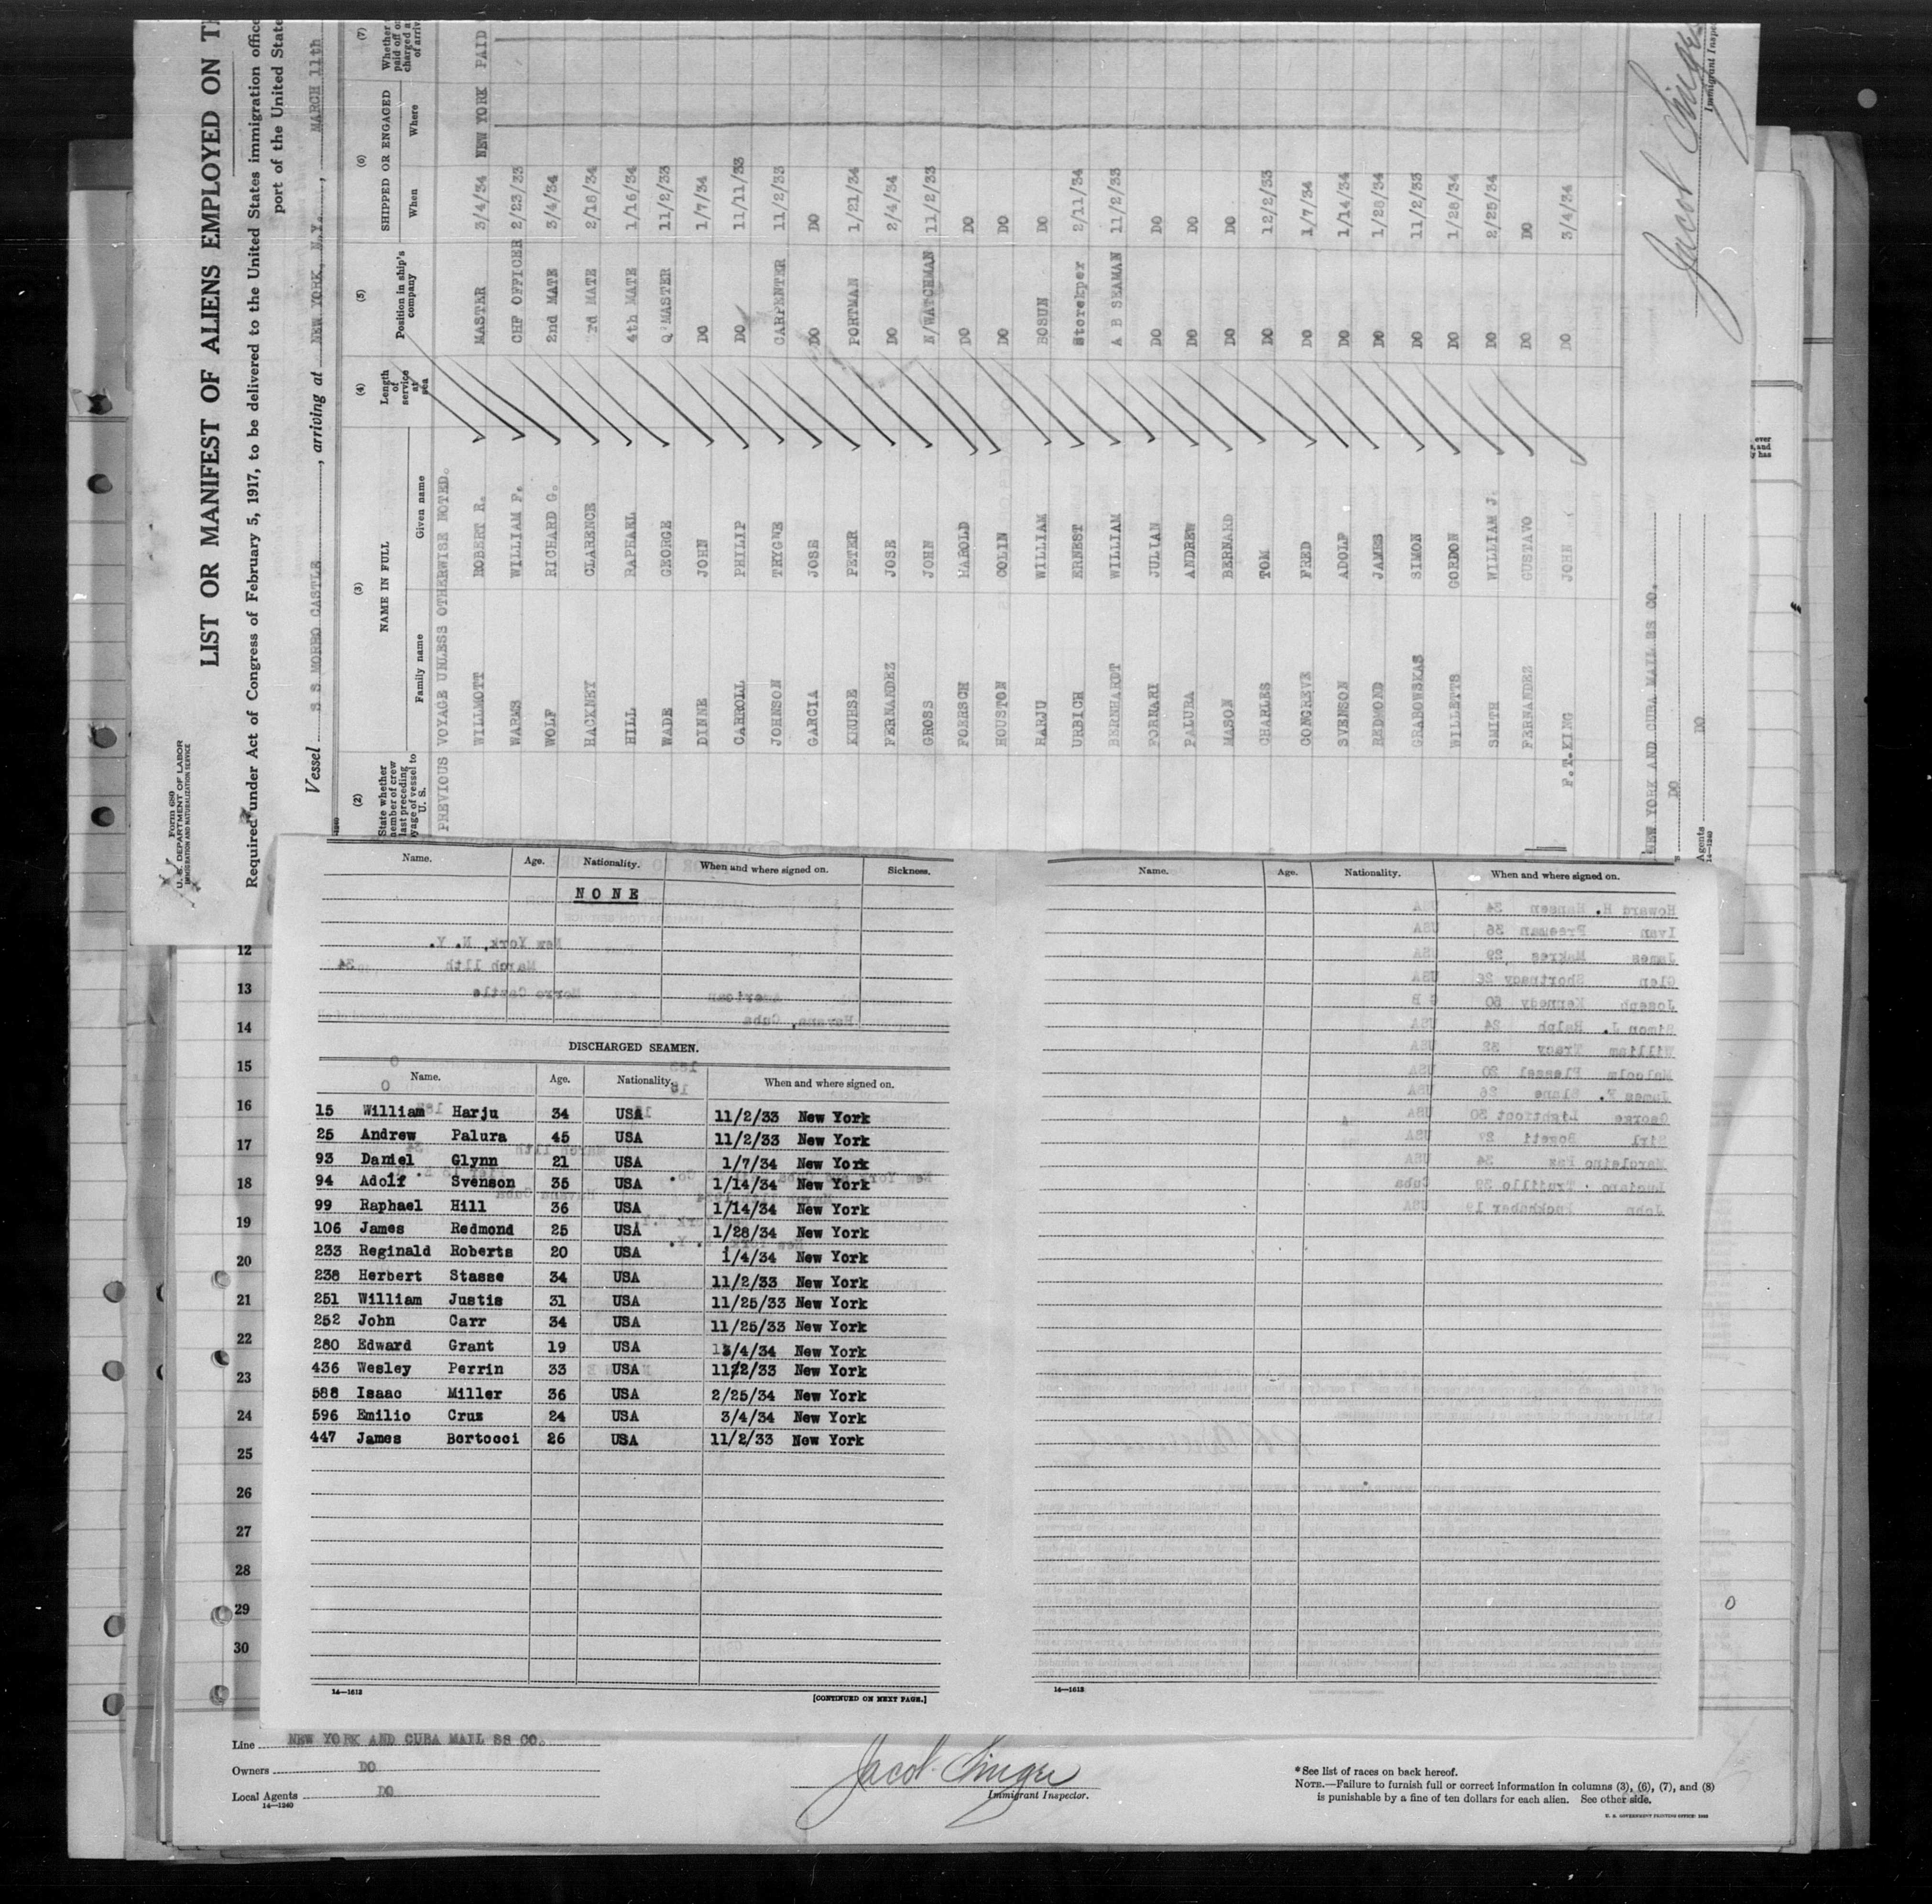 Form 680
U. S. DEPARTMENT OF LABOR
IMMIGRATION AND NATURALIZATION SERVICE
LIST OR MANIFEST OF ALIENS EMPLOYED ON
Required under Act of Congress of February 5, 1917, to be delivered to the United States immigration
port of the United
Vessel S S MORRO CASTLE, arriving at NEW YORK, N.Y., MARCH 11th
(2) (3) (4) (5) (6) (7)
State whether member of crew last preceding voyage of vessel to U. S. NAME IN FULL Length of service at sea Position in ship's company SHIPPED OR ENGAGED Whether
Family name Given name When Where
PREVIOUS VOYAGE UNLESS OTHERWISE NOTED.
WILLMOTT ROBERT R. MASTER 3/4/34 NEW YORK PAID
WARMS WILLIAM F. CHF OFFICER 2/23/33
WOLF RICHARD G. 2nd MATE 3/4/34
HACKNEY CLARENCE 3rd MATE 2/18/34
HILL RAPHAEL 4th MATE 1/16/34
WADE GEORGE Q'MASTER 11/2/33
DINNE JOHN DO 1/7/34
CARROLL PHILIP DO 11/11/33
JOHNSON TRYGWE CARPENTER 11/2/33
GARCIA JOSE DO DO
KRUHSE PETER PORTMAN 1/21/34
FERNANDEZ JOSE DO 2/4/34
GROSS JOHN N/WATCHMAN 11/2/33
FOERSCH HAROLD DO DO
HOUSTON COLIN DO DO
HARJU WILLIAM BOSUN DO
URBICH ERNEST Storekper 2/11/34
BERNHARDT WILLIAM A B SEAMAN 11/2/33
FORNARI JULIAN DO DO
PALURA ANDREW DO DO
MASON BERNARD DO DO
CHARLES TOM DO 12/2/33
CONGREVE FRED DO 1/7/34
SVENSON ADOLF DO 1/14/34
REDMOND JAMES DO 1/28/34
GRABOWSKAS SIMON DO 11/2/33
WILLETTS GORDON DO 1/28/34
SMITH WILLIAM J. DO 2/25/34
FERNANDEZ GUSTAVO DO DO
F.T.KING JOHN DO 3/4/34
NEW YORK AND CUBA MAIL SS CO.
DO
Agents DO
14—1240
Jacob Singer
Name. Age. Nationality. When and where signed on. Sickness.
NONE
DISCHARGED SEAMEN.
Name. Age. Nationality. When and where signed on.
15 William Harju 34 USA 11/2/33 New York
25 Andrew Palura 45 USA 11/2/33 New York
93 Daniel Glynn 21 USA 1/7/34 New York
94 Adolf Svenson 35 USA 1/14/34 New York
99 Raphael Hill 36 USA 1/14/34 New York
106 James Redmond 25 USA 1/28/34 New York
233 Reginald Roberts 20 USA 1/4/34 New York
238 Herbert Stasse 34 USA 11/2/33 New York
251 William Justis 31 USA 11/25/33 New York
252 John Carr 34 USA 11/25/33 New York
280 Edward Grant 19 USA 3/4/34 New York
436 Wesley Perrin 33 USA 11/2/33 New York
588 Isaac Miller 36 USA 2/25/34 New York
596 Emilio Cruz 24 USA 3/4/34 New York
447 James Bertocci 26 USA 11/2/33 New York
14—1613
[CONTINUED ON NEXT PAGE.]
Name. Age. Nationality. When and where signed on.
14—1613
12
13
14
15
16
17
18
19
20
21
22
23
24
25
26
27
28
29
30
0
Line NEW YORK AND CUBA MAIL SS CO.
Owners DO
Local Agents DO
14—1240
Jacob Singer
Immigrant Inspector.
*See list of races on back hereof.
NOTE.—Failure to furnish full or correct information in columns (3), (6), (7), and (8)
is punishable by a fine of ten dollars for each alien. See other side.